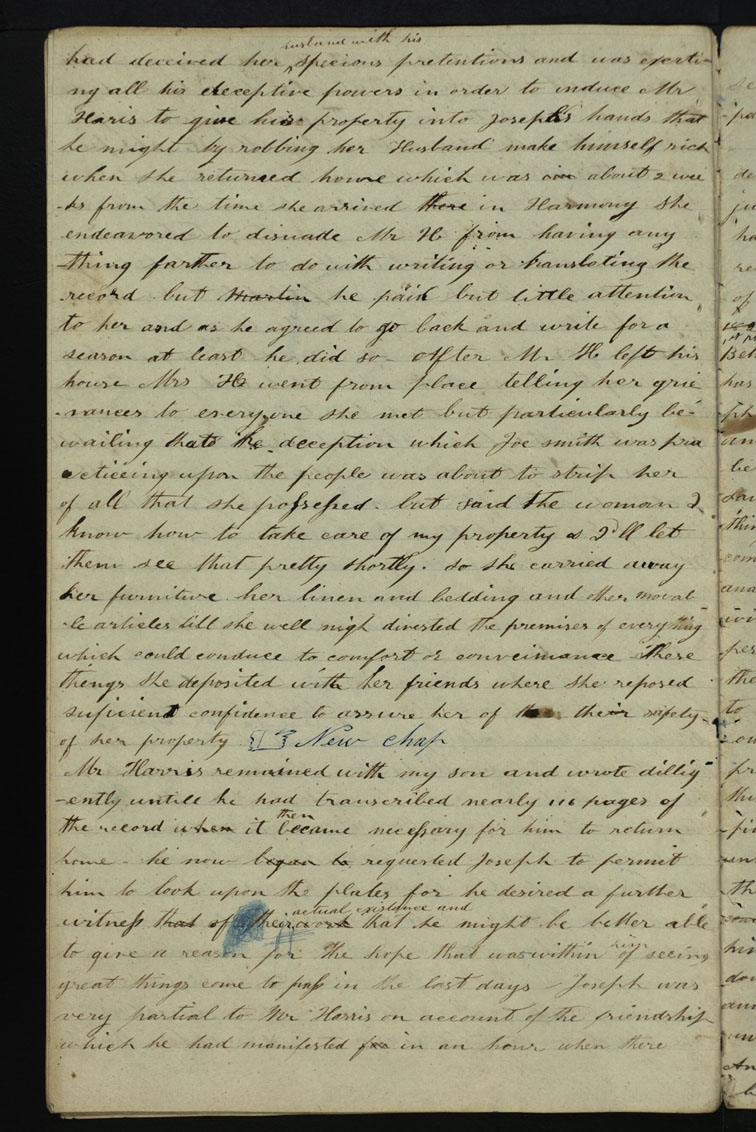 husband with his
had deceived her specious pretentions and was exerti-
ng all his deceptive powers in order to induce Mr
Haris to give his property into Joseph's hands that
he might by robbing her Husband make himself rich
when she returned home which was in about 2 wee
-ks from the time she arrived there in Harmony She
endeavored to disuade Mr H from having any
thing farther to do with writing or translating the
record but Martin he paid but little attention
to her and as he agreed to go back and write for a
season at least he did so- After Mr H left his
house Mrs H went from place telling her grie
-vances to everyone she met but particularly be-
wailing that the deception which Joe smith was pra
cticeing upon the people was about to strip her
of all that she possessed. but said the woman I
know how to take care of my property & I'll let
them see that pretty shortly. so she carried away
her furniture her linen and bedding and other movab-
-le articles till she well nigh divested the premises of everything
which could conduce to comfort or conveinance These
things she deposited with her friends where she reposed
suficient confidence to assure her of the their safety-
of her property New chap
Mr Harris remained with my son and wrote dillig-
-ently untill he had transcribed nearly 116 pages of
then
the record when it became necessary for him to return
home- he now began to requested Joseph to permit
him to look upon the plates for he desired a further
actual existence and
witness that of their work that he might be better able
him
to give a reason for the hope that was within of seeing
great things come to pass in the last days Joseph was
very partial to Mr Harris on account of the friendship
which he had manifested for in an hour when there